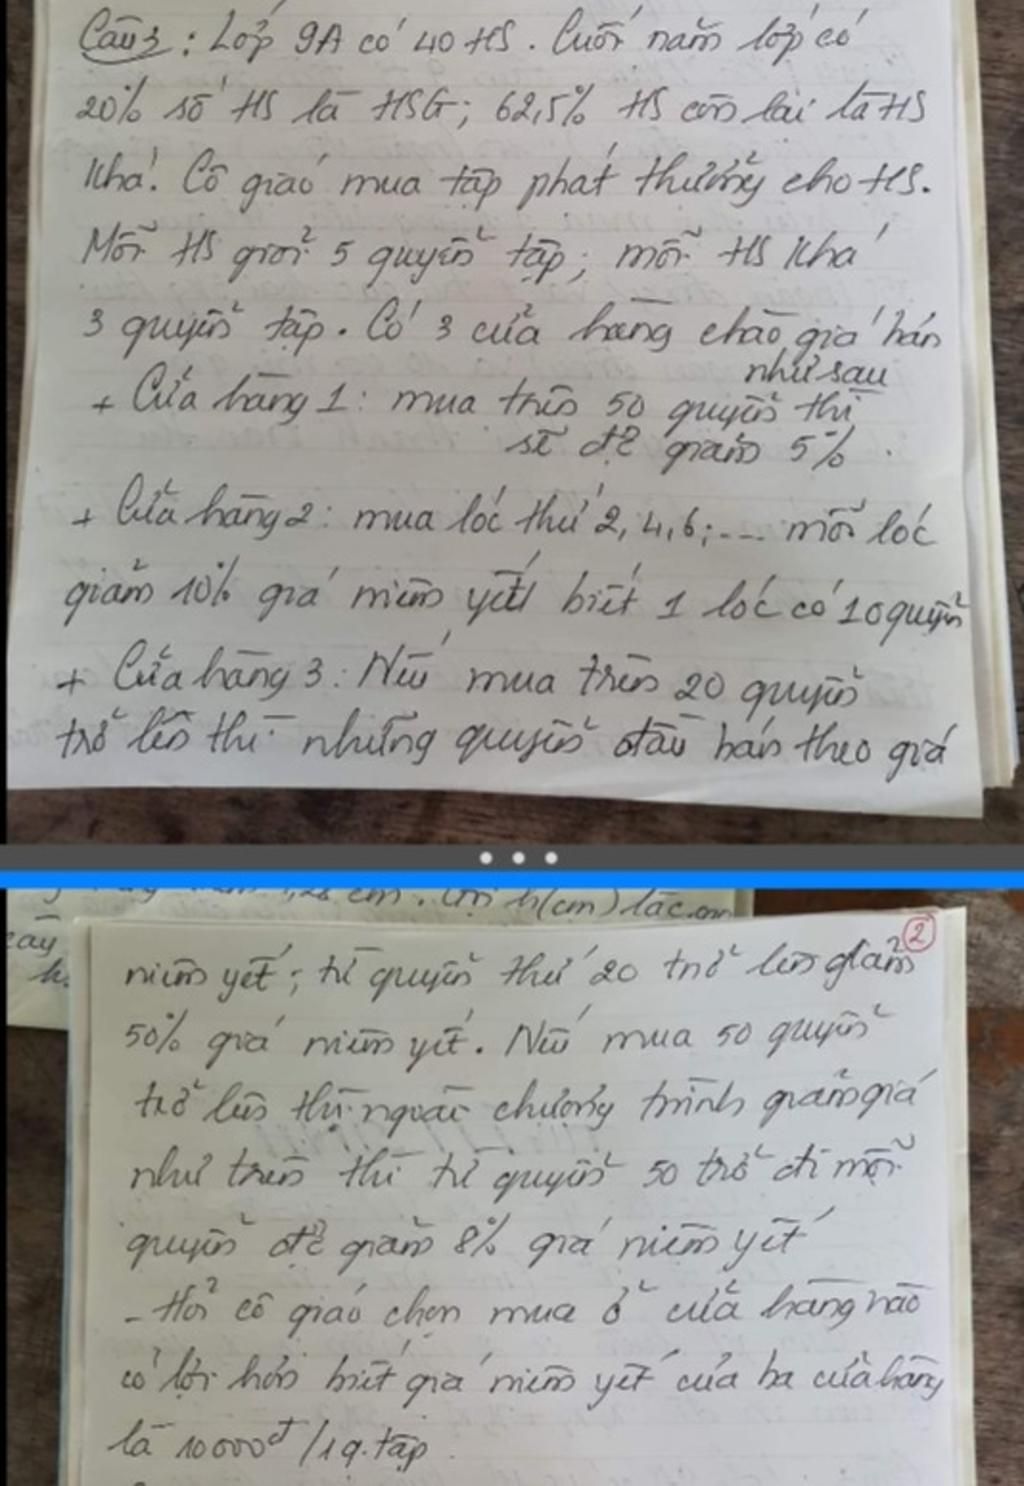 Câu 3: Lớp 9A có 40 HS. Cuối năm lớp có
20% số HS là HSG; 62,5% HS còn lại là HS
Khá. Cô giáo mua tập phát thưởng cho HS.
Mỗi HS giỏi 5 quyển tập; mỗi HS Khá
3 quyển tập. Có 3 cửa hàng chào giá bán
như sau
+ Cửa hàng 1: mua trên 50 quyển thì
sẽ đc giảm 5%.
+ Cửa hàng 2: mua lốc thứ 2, 4, 6; ... mỗi lốc
giảm 10% giá niêm yết biết 1 lốc có 10 quyển
+ Cửa hàng 3: Nếu mua trên 20 quyển
trở lên thì những quyển đầu bán theo giá
cm. Gọi h(cm) là c.cm
cây
h
2
niêm yết; từ quyển thứ 20 trở lên giảm
50% giá niêm yết. Nếu mua 50 quyển
trở lên thì ngoài chương trình giảm giá
như trên thì từ quyển 50 trở đi mỗi
quyển đc giảm 8% giá niêm yết
- Hỏi cô giáo chọn mua ở cửa hàng nào
có lợi hơn biết giá niêm yết của ba cửa hàng
là 10000đ/1q.tập.